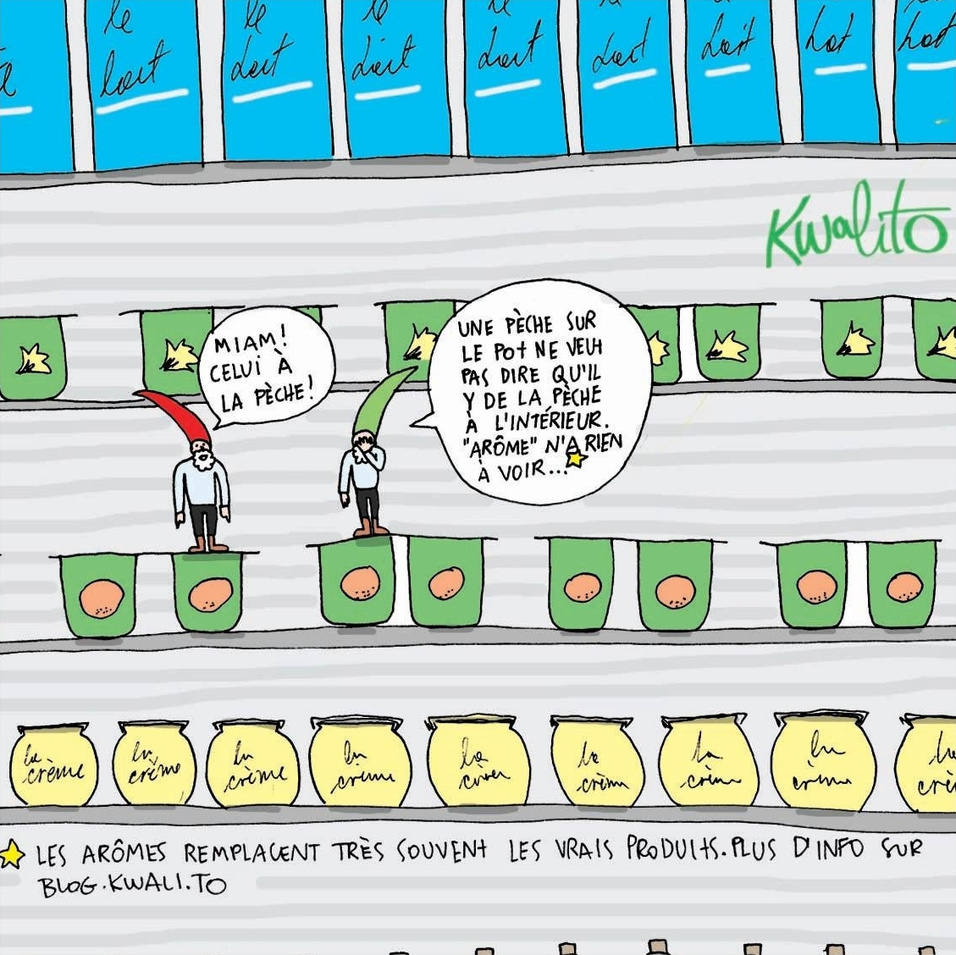 le le le le le
lait lait lait lait lait lait lait lait
Kwalito
MIAM!
CELUI À
LA PÈCHE!
UNE PÈCHE SUR
LE POT NE VEUT
PAS DIRE QU'IL
Y DE LA PÈCHE
À L'INTÉRIEUR.
"ARÔME" N'A RIEN
À VOIR...
la la la la la la la la
crème crème crème crème crème crème crème
LES ARÔMES REMPLACENT TRÈS SOUVENT LES VRAIS PRODUITS. PLUS D'INFO SUR
BLOG.KWALI.TO